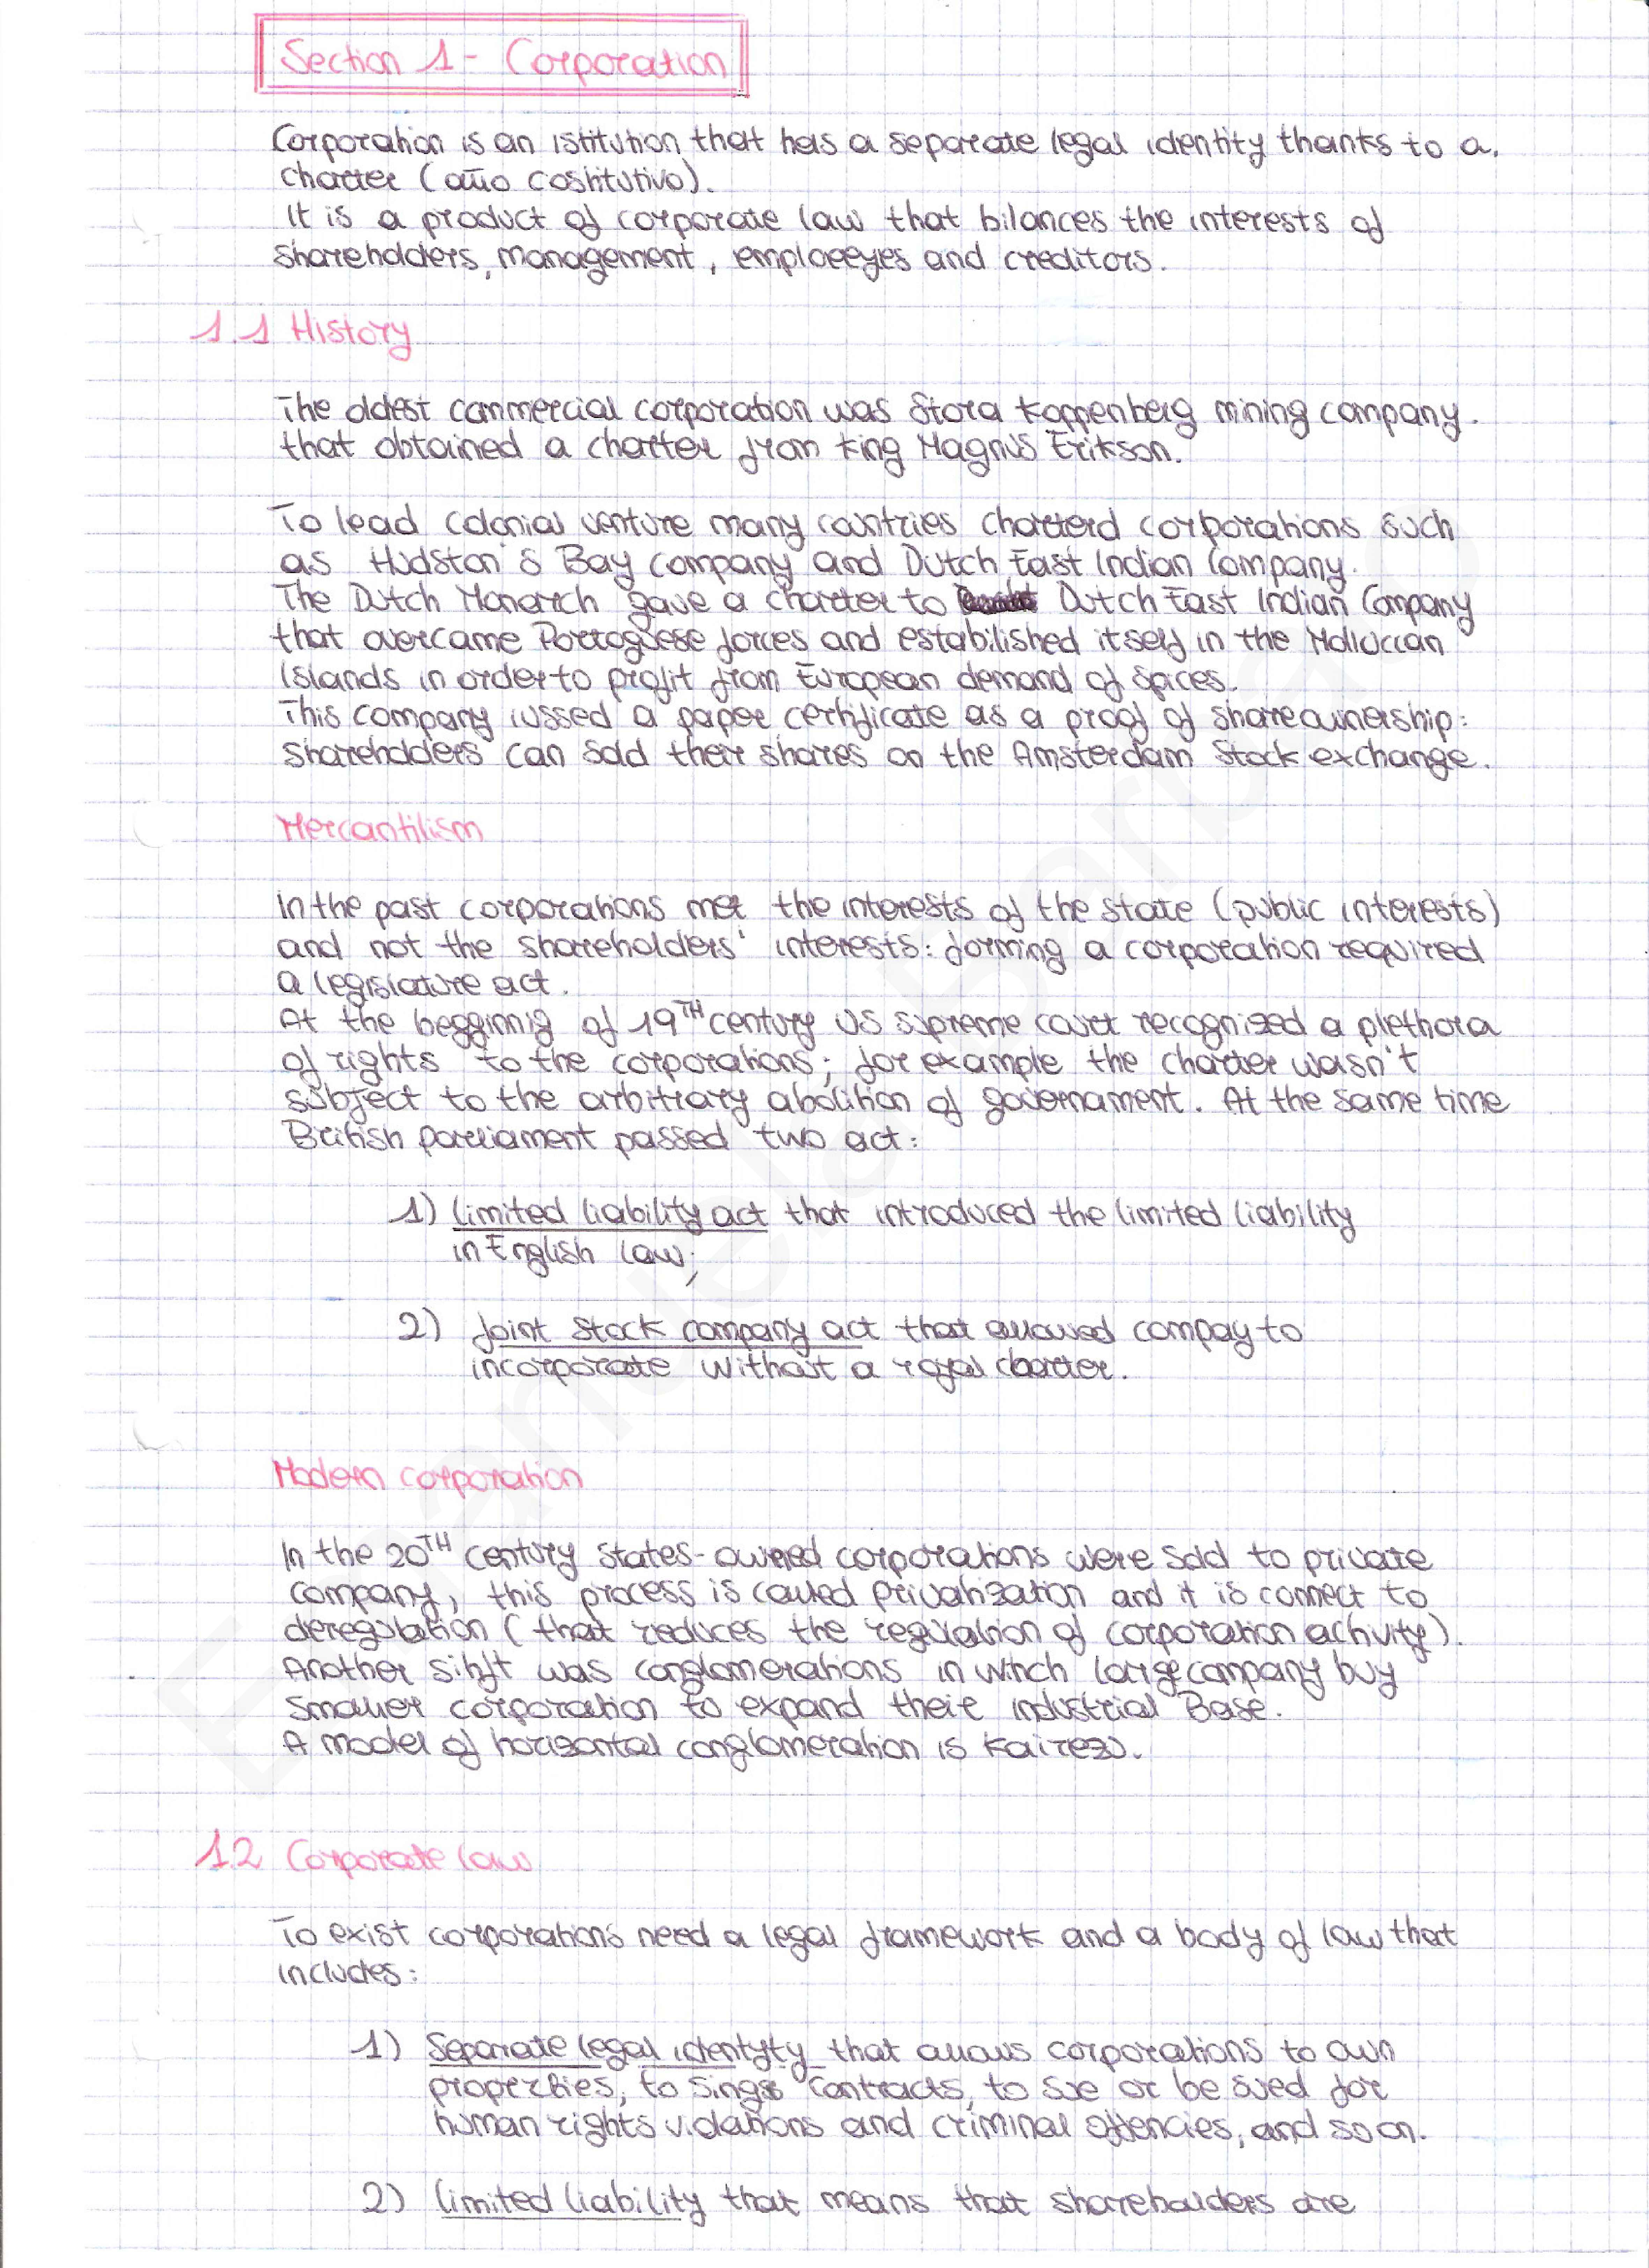 Section 1 - Corporation
Corporation is an istitution that has a separate legal identity thanks to a.
charter (atto costitutivo).
It is a product of corporate law that bilances the interests of
shareholders, management, emploeeyes and creditors.
1.1 History
The oldest commercial corporation was Stora Koppenberg mining company.
that obtained a charter from King Magnus Erikson.
To lead colonial venture many countries charterd corporations such
as Hudston's Bay Company and Dutch East Indian Company.
The Dutch Monarch gave a charter to Dutch East Indian Company
that overcame Portoguese forces and estabilished itself in the Molluccan
Islands in order to profit from European demand of spices.
This company iussed a paper certificate as a proof of shareownership:
shareholders can sold their shares on the Amsterdam Stock exchange.
Mercantilism
In the past corporations met the interests of the state (public interests)
and not the shareholders' interests: forming a corporation required
a legislature act.
At the begginnig of 19TH century US supreme court recognised a plethora
of rights to the corporations; for example the charter wasn't
subject to the arbitrary abolition of governament. At the same time
British parliament passed two act:
1) limited liability act that introduced the limited liability
in English law;
2) Joint Stock company act that allowed compay to
incorporate without a royal charter.
Modern corporation
In the 20TH century states-owned corporations were sold to private
company, this process is called privatization and it is connect to
deregulation (that reduces the regulation of corporation activity).
Another sihft was conglomerations in witch large company buy
smaller corporation to expand their industrial Base.
A model of horizontal conglomeration is Kairezu.
1.2 Corporate law
To exist corporations need a legal framework and a body of law that
includes:
1) Separate legal identyty that allows corporations to own
properties, to sings contracts, to sue or be sued for
human rights violations and criminal offencies, and so on.
2) limited liability that means that shareholders are